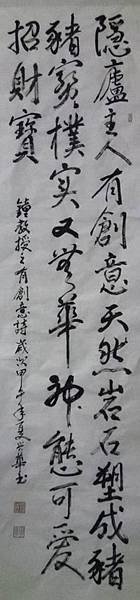 隱廬主人有創意天然岩石塑成豬
豬寶樸實又無華神態可愛
招財寶
鐘教授之有創意詩歲次甲午年夏